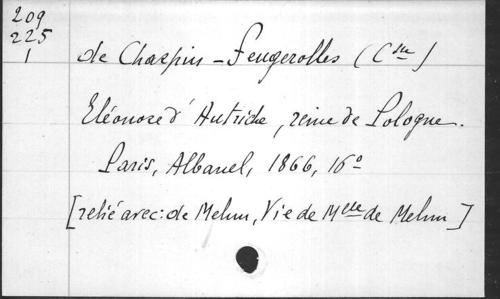 209
225
1
de Charpin-Feugerolles (Csse)
Eléonore d'Autriche, reine de Pologne.
Paris, Albanel, 1866, 16°
[relié avec: de Melun, Vie de Melle de Melun]